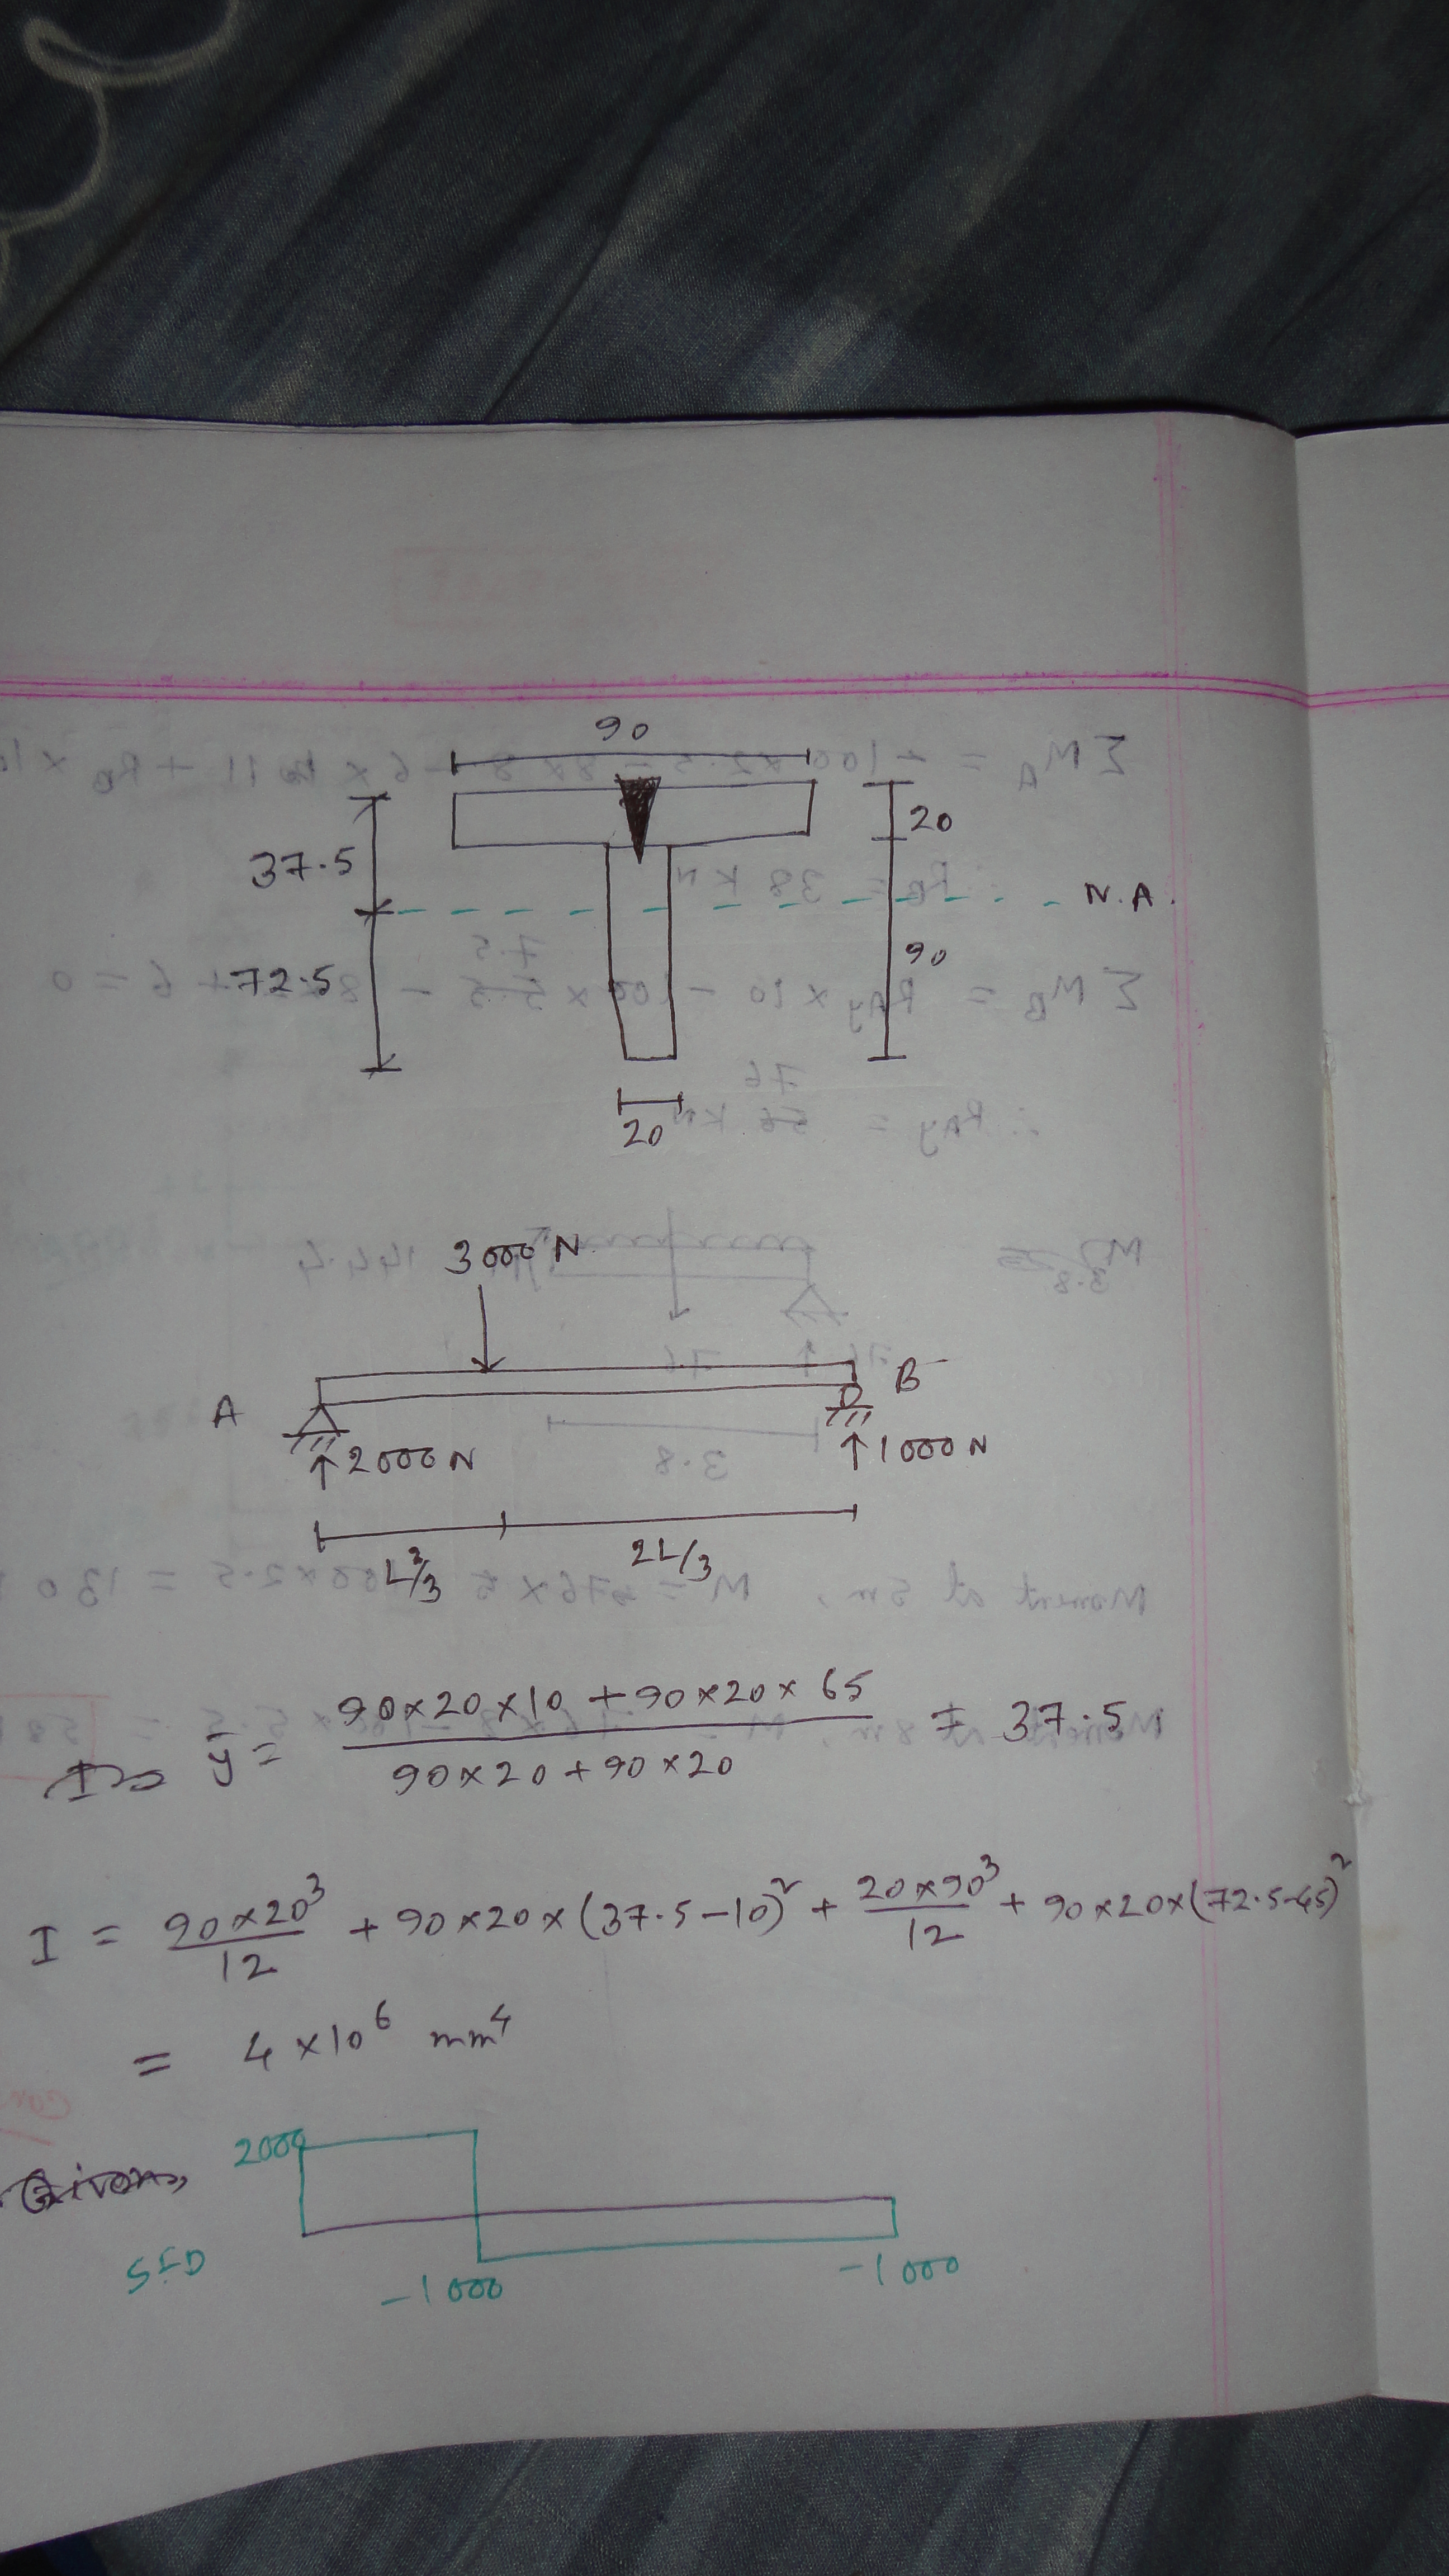 90
20
37.5
N.A.
90
72.5
20
3000 N
A
B
2000 N
1000 N
L/3
2L/3
ȳ = (90×20×10 + 90×20×65) / (90×20 + 90×20) = 37.5
I = 90×20³/12 + 90×20×(37.5-10)² + 20×90³/12 + 90×20×(72.5-45)²
= 4×10⁶ mm⁴
Given,
2000
SFD
-1000
-1000